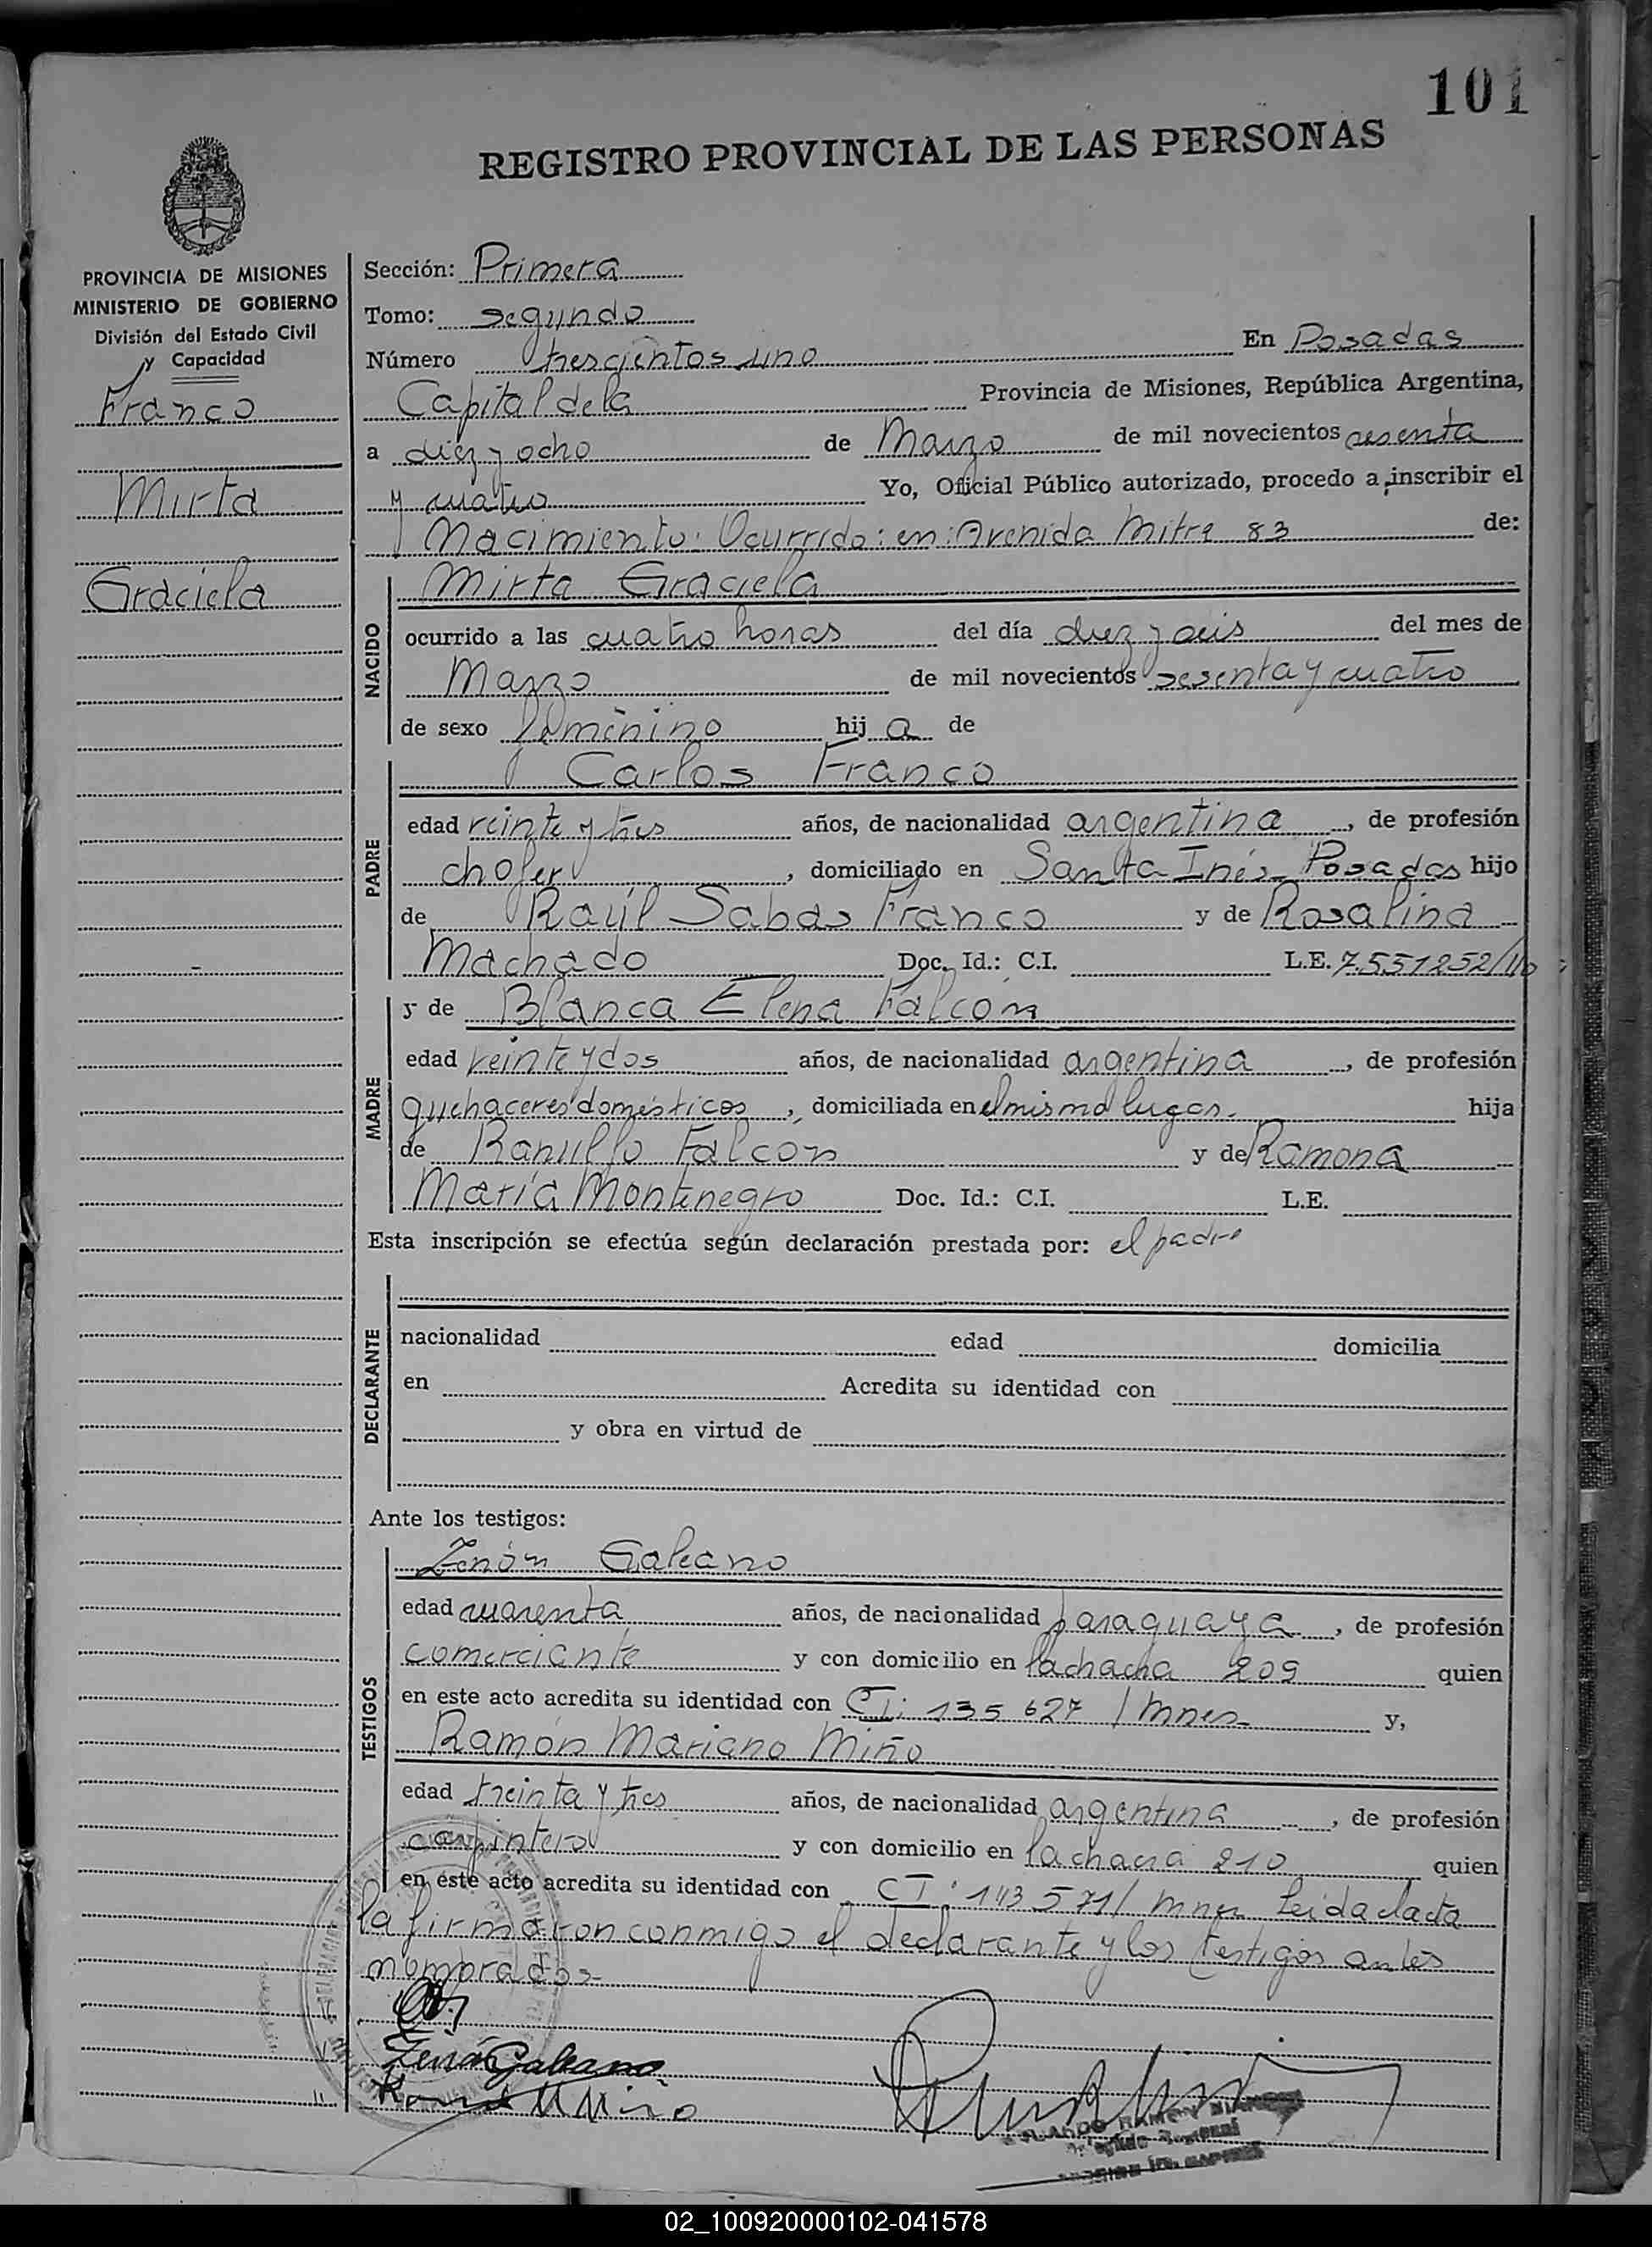 101
REGISTRO PROVINCIAL DE LAS PERSONAS
PROVINCIA DE MISIONES
MINISTERIO DE GOBIERNO
División del Estado Civil
y Capacidad
Franco
Mirta
Graciela
Sección: Primera
Tomo: segundo
Número trescientos uno En Posadas
Capital de la Provincia de Misiones, República Argentina,
a diez y ocho de Marzo de mil novecientos sesenta
y cuatro Yo, Oficial Público autorizado, procedo a inscribir el
Nacimiento: Ocurrido: en: Avenida Mitre 83 de:
NACIDO
Mirta Graciela
ocurrido a las cuatro horas del día diez y seis del mes de
Marzo de mil novecientos sesenta y cuatro
de sexo femenino hij a de
PADRE
Carlos Franco
edad veinte y tres años, de nacionalidad argentina, de profesión
chofer, domiciliado en Santa Inés- Posadas hijo
de Raúl Sabas Franco y de Rosalina
Machado Doc. Id.: C.I. L.E. 7.551252/
MADRE
y de Blanca Elena Falcón
edad veinte y dos años, de nacionalidad argentina, de profesión
quehaceres domésticos, domiciliada en el mismo lugar. hija
de Ranulfo Falcon y de Ramona
María Montenegro Doc. Id.: C.I. L.E.
Esta inscripción se efectúa según declaración prestada por: el padre
DECLARANTE
nacionalidad edad domicilia
en Acredita su identidad con
y obra en virtud de
Ante los testigos:
TESTIGOS
Zenón Galeano
edad cuarenta años, de nacionalidad paraguaya, de profesión
comerciante y con domicilio en 209 quien
en este acto acredita su identidad con CI: 135 627 / Mnes- y,
Ramón Mariano Miño
edad treinta y tres años, de nacionalidad argentina, de profesión
carpintero y con domicilio en 210 quien
en este acto acredita su identidad con CI: 143 571/ Mnes Leida el acta
la firmaron conmigo el declarante y los testigos antes
nombrados-
Zenón Galeano
Ramón M Miño
02_100920000102-041578